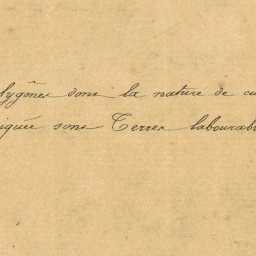 lygônes dons la nature de cu
iquée sons Terres labourab